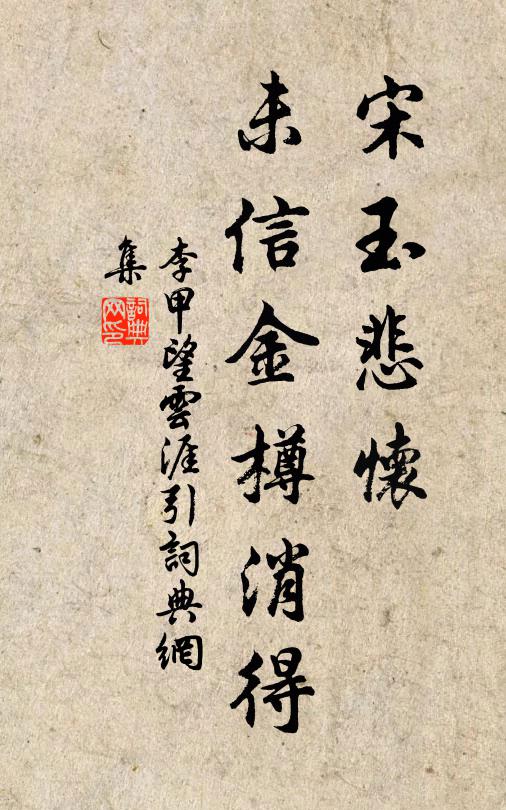 宋玉悲懷
未信金樽消得
李甲望雲涯引詞典網
集
詞典
网印